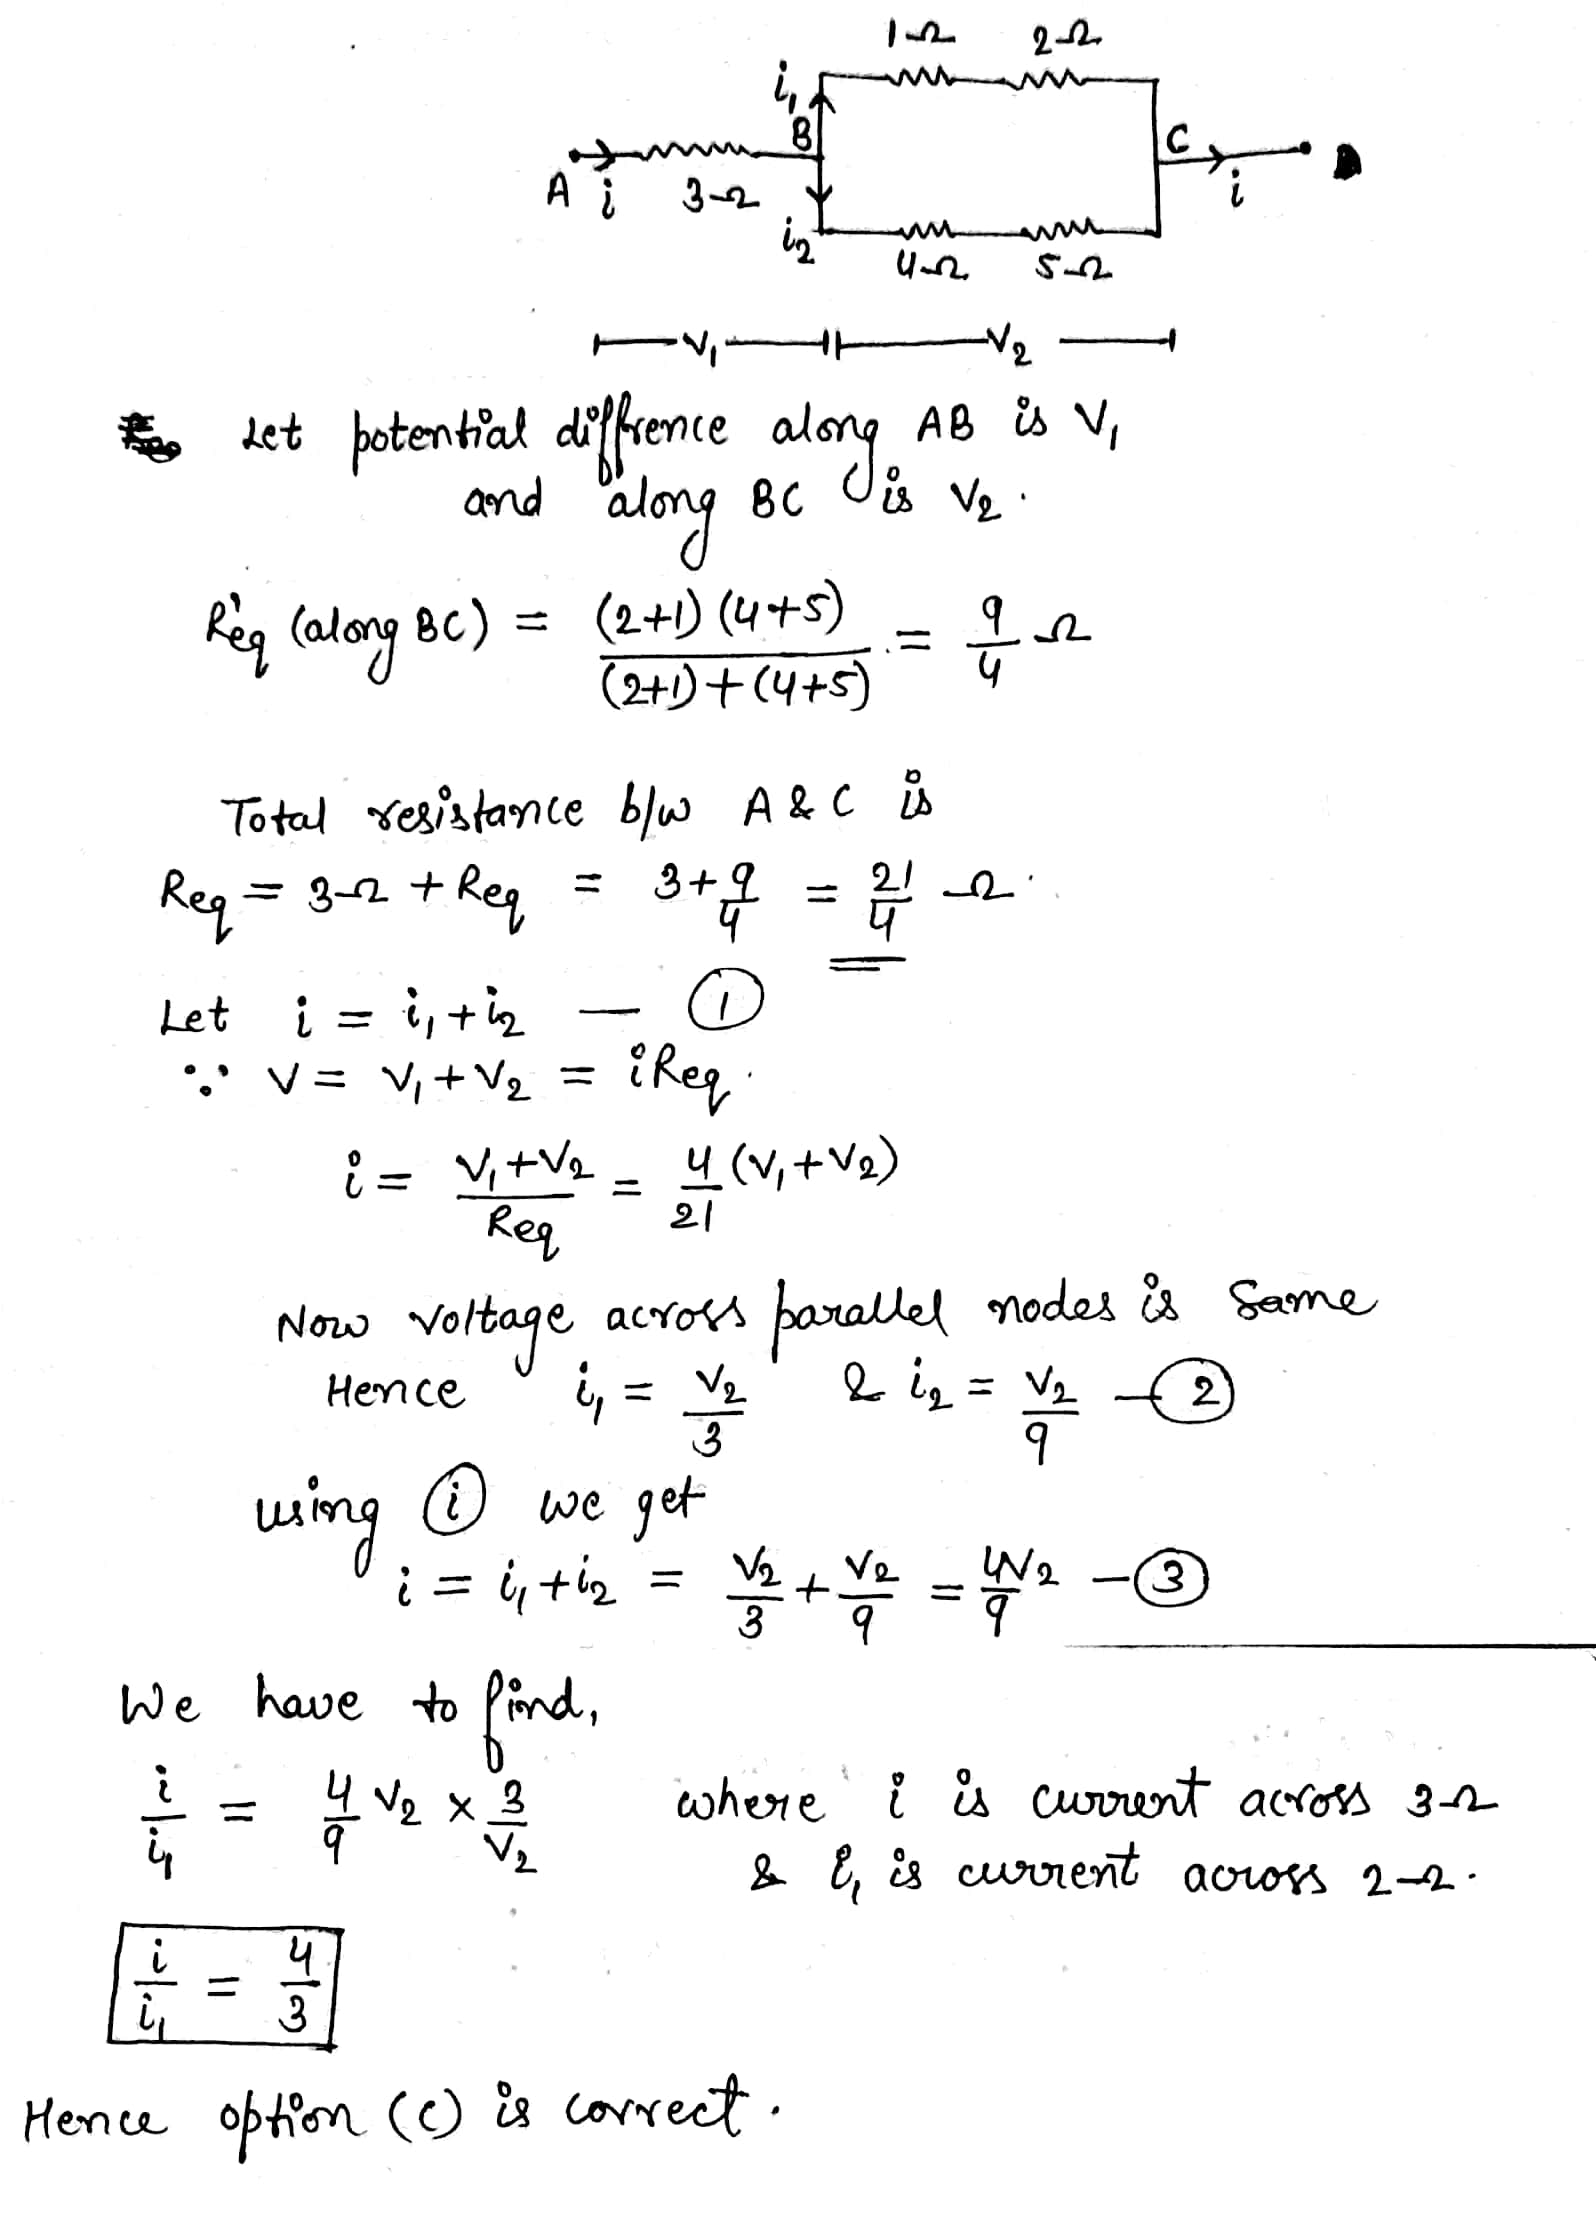 1Ω 2Ω
i₁
B
C
A i 3Ω
i
D
i₂
4Ω 5Ω
V₁ V₂
Let potential diffrence along AB is V₁
and along BC is V₂.
Req (along BC) = (2+1)(4+5) / (2+1)+(4+5) = 9/4 Ω
Total resistance b/w A & C is
Req = 3Ω + Req = 3+9/4 = 21/4 Ω.
Let i = i₁+i₂ — ①
∵ V = V₁+V₂ = iReq.
i = V₁+V₂/Req = 4/21 (V₁+V₂)
Now voltage across parallel nodes is same
Hence i₁ = V₂/3 & i₂ = V₂/9 — ②
using ⓘ we get
i = i₁+i₂ = V₂/3 + V₂/9 = 4V₂/9 — ③
We have to find,
i/i₁ = 4/9 V₂ × 3/V₂ where i is current across 3Ω
& i₁ is current across 2Ω.
i/i₁ = 4/3
Hence option (c) is correct.